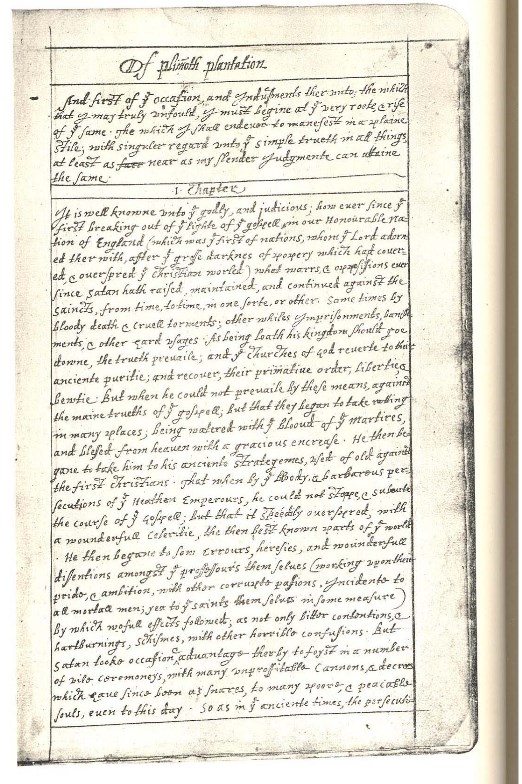 Of plimoth plantation
And first of yͤ occasion, and Indusments ther unto; the which
that I may truly unfould, I must begine at yͤ very roote & rise
of yͤ same. The which I shall endevor to manefest in a plaine
stile; with singuler regard unto yͤ simple trueth in all things,
at least as near as my slender Judgmente can attaine
the same.
1. Chapter
It is well knowne unto yͤ godly, and judicious; how ever since yͤ
first breaking out of yͤ lighte of yͤ gospell, in our Honourable Na-
tion of England (which was yͤ first of nations, whom yͤ Lord adorn-
ed ther with, after yͤ grose darknes of popery which had cover-
ed, & overspred yͤ Christian world) what warrs, & oppossissions ever
since Satan hath raised, maintained, and continued against the
Saincts, from time, to time, in one sorte, or other. Some times by
bloody death & cruell torments; other whiles Imprisonments, banish-
ments, & other hard usages. As being loath his kingdom should goe
downe, the trueth prevaile; and yͤ Churches of god reverte to their
anciente puritie; and recover, their primative order, libertie, &
bewtie. But when he could not prevaile by these means, against
the maine trueths of yͤ gospell; but that they began to take rootting
in many places; being watered with yͤ bloud of yͤ Martires,
and blesed from heaven with a gracious encrease. He then be-
gane to take him to his anciente strategemes, used of old against
the first Christians. That when by yͤ bloody, & barbarous per-
secutions of yͤ Heathen Emperours, he could not stoppe, & subverte
the course of yͤ Gospell; but that it speedily overspred, with
a wounderfull Celeritie, the then best known parts of yͤ world.
He then begane to sow Errours, heresies, and wounderfull
disentions amongst yͤ professours them selves (working upon their
pride, & ambition, with other corrupte passions, Incidente to
all mortall men; yea to yͤ saints them selves in some measure)
By which wofull effects followed; as not only bitter contentions, &
hartburnings, schismes, with other horrible confusions. But
Satan tooke occasion & advantage therby to foyst in a number
of vile ceremoneys, with many unproffitable Cannons, & decrees
which have since been as snares, to many poore, & peacable
souls, even to this day. So as in yͤ anciente times, the persecuti-